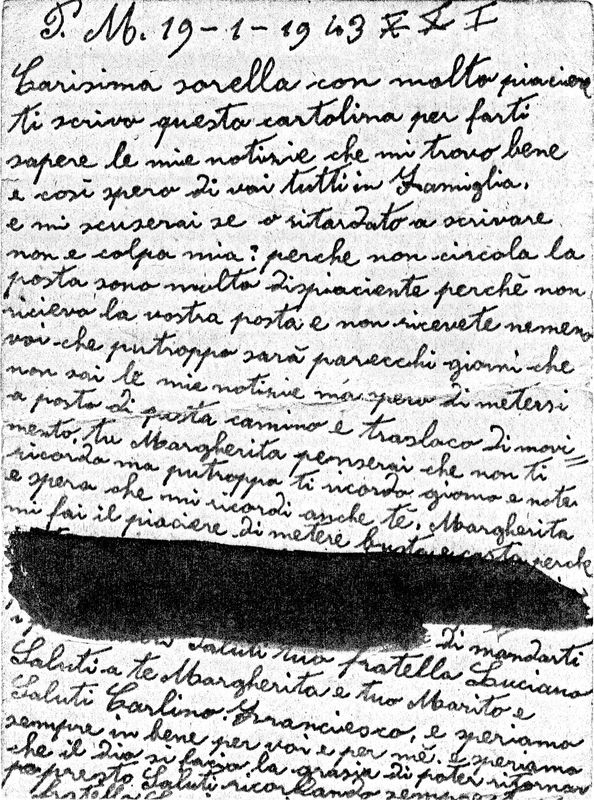 P. M. 19-1-1943 XXI
Carisima sorella con molto piacere
ti scrivo questa cartolina per farti
sapere le mie notizie che mi trovo bene
e così spero di voi tutti in Famiglia.
e mi scuserai se o ritardato a scrivare
non e colpa mia: perche non circola la
posta sono molto dispiaciente perchè non
ricievo la vostra posta e non ricevete nemeno
voi che putroppo sarà parecchi giorni che
non sai le mie notizie ma spero di metersi
a posto di posta camino e traslaco di movi=
mento, tu Margherita penserai che non ti
ricordo ma putroppo ti ricordo giorno e note
e spera che mi ricordi anche te. Margherita
mi fai il piaciere di metere busta e carta perche
di mandarti
Saluti tuo fratella Luciano
Saluti a te Margherita e tuo Marito e
Saluti Carlino. Franciesco, e speriamo
sempre in bene per voi e per mè. e speriamo
che il dio si faccia la grazia di poter ritornar
pa presto Saluti ricordando
fratella